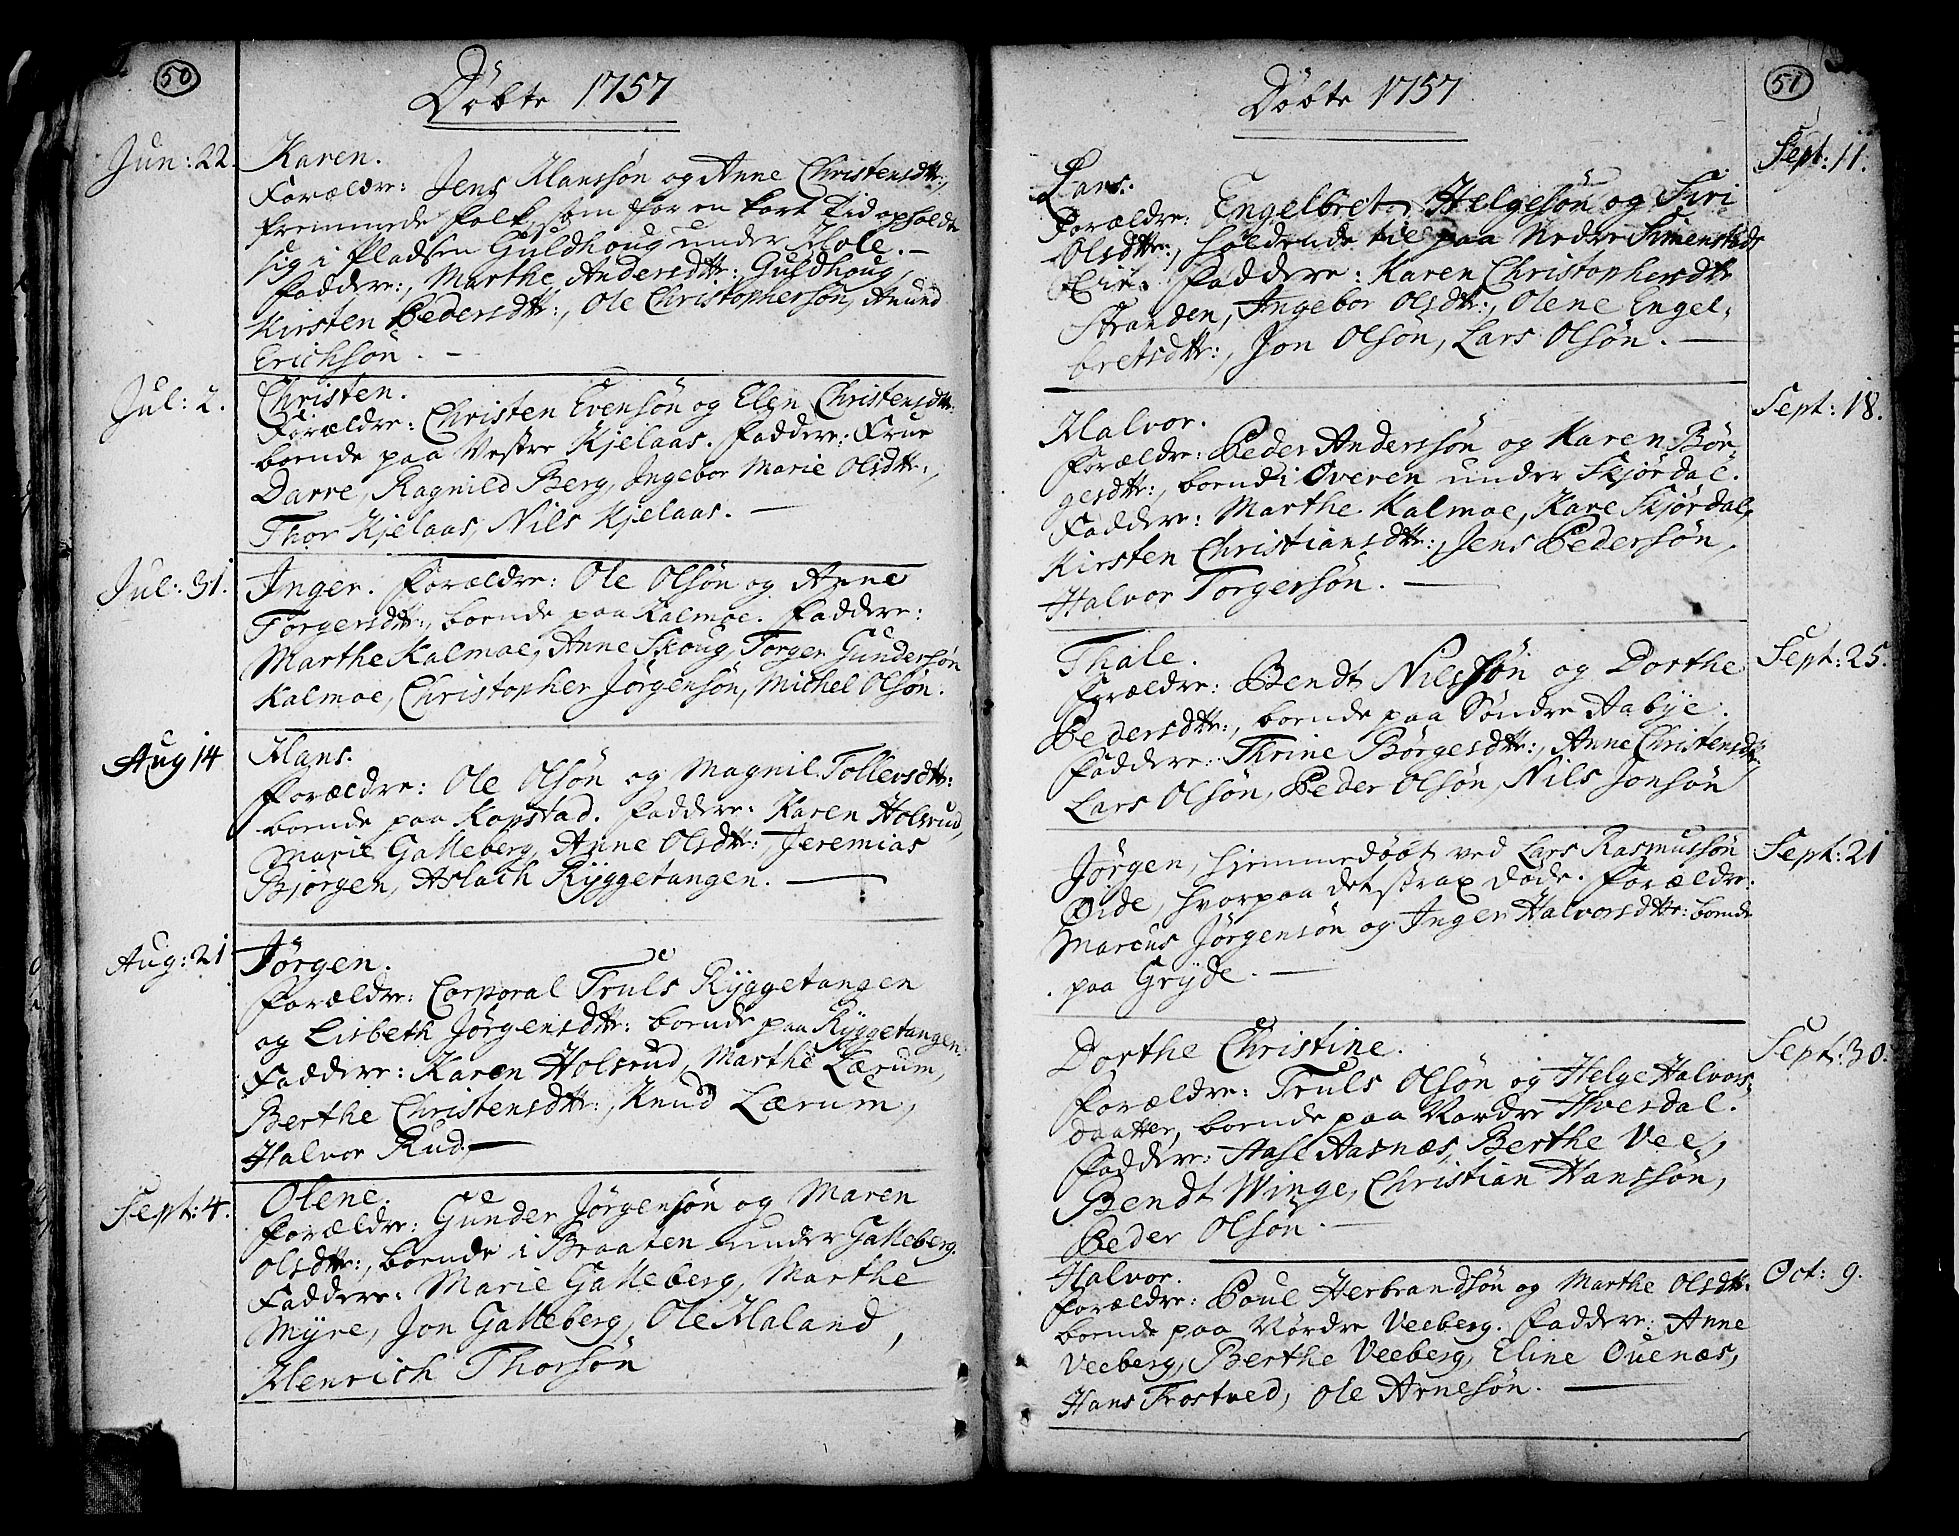 50
Döbte 1757
Jun: 22.
Karen.
Forældre: Jens Hanssön og Anne Christensdttr:,
fremmede folk, som for en kort Tid opholdt
sig i Pladsen Guldhoug under Hole. –
Faddere:, Marthe Andersdttr: Guldhoug,
Kirsten Pedersdttr:, Ole Christophersön, Anund
Erichsön. –
Jul: 2.
Christen.
Forældre: Christen Evensön og Elen Christensdttr:
boende paa Vestre Kjelaas. Faddere: Frue
Darre, Ragnild Berg, Ingebor Marie Olsdttr:,
Thor Kjelaas, Nils Kjelaas. —
Jul: 31.
Inger. Forældre: Ole Olsön og Anne
Torgersdttr:, boende paa Kalmoe. Faddere:
Marthe Kalmoe, Anne Skoug, Torger Gundersön
Kalmoe, Christopher Jörgensön, Michel Olsön.
Aug 14
Hans.
Forældre: Ole Olsön og Magnil Tollevsdttr:
boende paa Kopstad. Faddere: Karen Holsrud,
Marie Galleberg, Anne Olsdttr:, Jeremias
Bjørgen, Aslach Ryggetangen. —
Aug: 21
Jörgen.
Forældre: Corporal Truls Ryggetangen
og Lisbeth Jörgensdttr: boende paa Ryggetangen.
Faddere: Karen Holsrud, Marthe Lærum,
Berthe Christensdttr:, Knud Lærum,
Halvor Rud. —
Sept: 4.
Olene.
Forældre: Gunder Jörgensön og Maren
Olsdttr:, boende i Braaten under Galleberg.
Faddere: Marie Galleberg, Marthe
Myre, Jon Galleberg, Ole Haland,
Henrich Thorsön
51
Döbte 1757
Sept: 11.
Lars.
Forældre: Engelbret Helgesön og Siri
Olsdttr:, holdende til paa Nedre Simenstads
Eie. Faddere: Karen Christophersdttr
Stranden, Ingebor Olsdttr:, Olene Engel-
bretsdttr:, Jon Olsön, Lars Olsön. —
Sept: 18.
Halvor.
Forældre: Peder Anderssön og Karen Bör-
gesdttr:, boend i Overen under Skjördal.
Faddere: Marthe Kalmoe, Kare Skjördal,
Kirsten Christiansdttr:, Jens Pedersön,
Halvor Torgersön. —
Sept: 25.
Thale.
Forældre: Bendt Nilssön og Dorthe
Pedersdttr:, boende paa Söndre Aabye.
Faddere: Thrine Börgesdttr:, Anne Christensdttr,
Lars Olsön, Peder Olsön, Nils Jonsön
Sept: 21
Jörgen, hjemmedöbt ved Lars Rasmussön
Øide, hvorpaa det strax döde. Forældre:
Marcus Jörgensön og Inger Halvorsdttr: boende
paa Gryde. —
Sept: 30.
Dorthe Christine.
Forældre: Truls Olsön og Helge Halvors,
daatter, boende paa Nordre Hvesdal.
Faddere: Aase Aasnæs, Berthe Vee,
Bendt Winge, Christian Hanssön,
Peder Olsön. —
Oct: 9.
Halvor.
Forældre: Poul Herbrandsön og Marthe Olsdttr:
boende paa Nördre Veeberg. Faddere: Anne
Veeberg, Berthe Veeberg, Eline Ouenæs,
Hans Trostved, Ole Arnesön. —